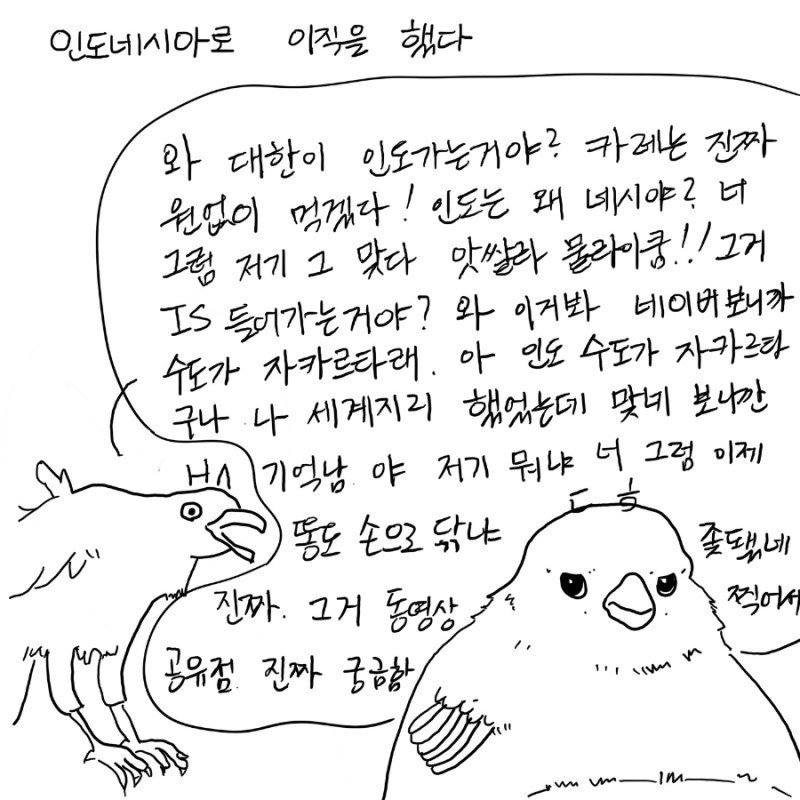 인도네시아로 이직을 했다
와 대한이 인도가는거야? 카레는 진짜
원없이 먹겠다! 인도는 왜 네시야? 너
그럼 저기 그 맞다 앗쌀라 물라이쿰!! 그거
IS 들어가는거야? 와 이거봐 네이버보니까
수도가 자카르타래. 아 인도 수도가 자카르타
구나 나 세계지리 했었는데 맞네 보니깐
기억남 야 저기 뭐냐 너 그럼 이제
똥도 손으로 닦냐 좆됐네
진짜. 그거 동영상 찍어서
공유점 진짜 궁금함